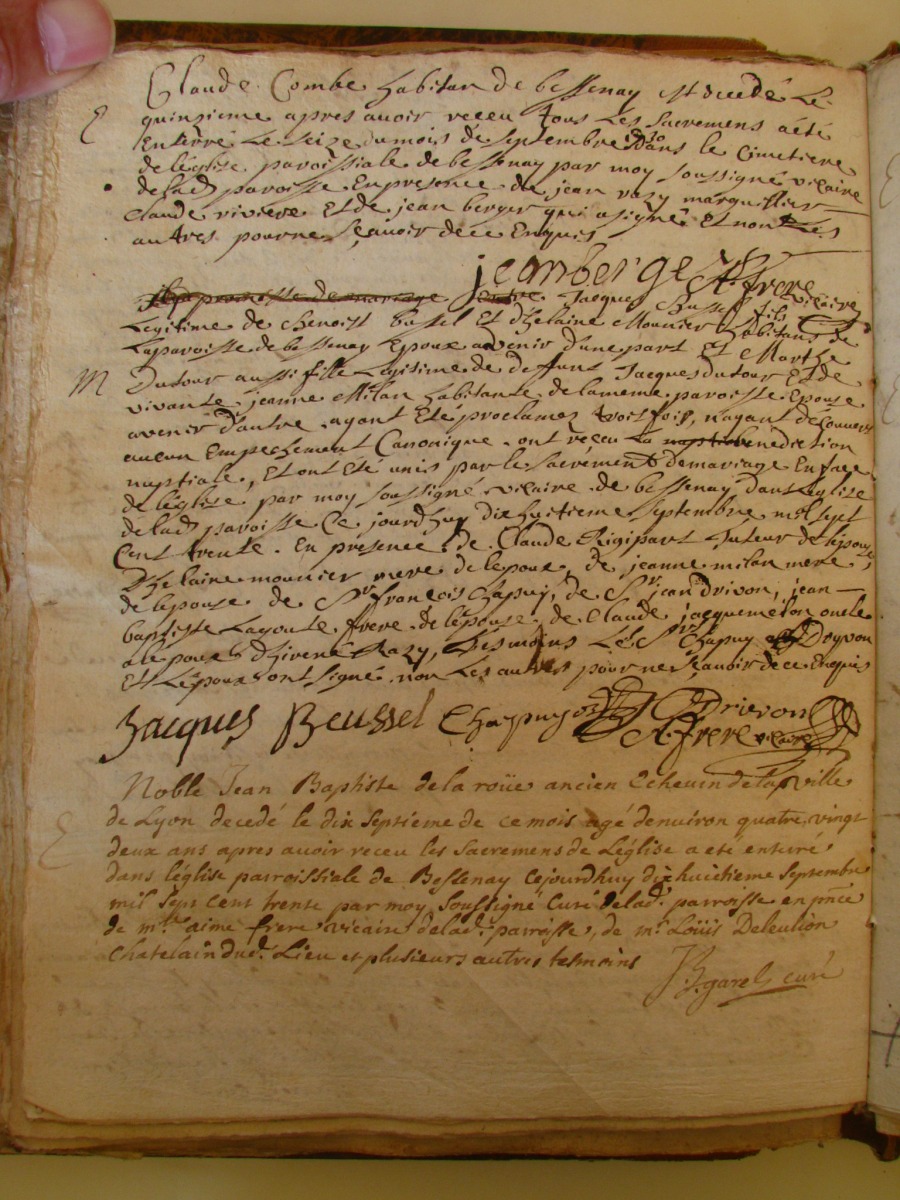 Claude Combe habitan de bessenay est decedé le
E quinzieme apres avoir receu tous les sacremens a été
Enterré le seize du mois de septembre 1730 dans le cimetiere
de l'église paroissiale de bessenay par moy soussigné vicaire
de lad paroisse En presence de jean razy marguillier
Claude riviere Et de jean berger qui a signé Et non les
autres pour ne sçavoir de ce Enquis
jean berge A. frere vicaire
Il y a promesse de mariage Entre Jacques Bussel fils
Legitime de benoist bussel Et d'helaine Mounier habitans de
la paroisse de bessenay Epoux avenir d'une part Et Marthe
M Dutour aussi fille Legitime de deffunt Jacques dutour Et de
vivante jeanne Milan habitante de la meme paroisse Epouse
avenir d'autre ayant Eté proclamés trois fois, n'ayant découvert
aucun Empechement Canonique ont receu la benediction
nuptiale, Et ont été unis par le sacrément de mariage En face
de l'église par moy soussigné vicaire de bessenay dans l'église
de lad paroisse Ce jourd'huy dix huitieme septembre mil sept
Cent trente. En presence de Claude Rigipart tuteur de l'épouse,
D'helaine mounier mere de l'epoux, de jeanne milan mere
de l'epouse de Sr françois Chapuy, de Sr jean drivon, jean
baptiste Layoute frere de l'épouse de Claude jacquemeton oncle
a l'epoux d' Razy, tesmoins Les Srs Chapuy Et Doyvon
Et L'époux ont signé non Les autres pour ne sçavoir de ce Enquis
Jacques Beussel Chapuy Drievon
A. frere vicaire
Noble Jean Baptiste de la roüe ancien Echevin de la ville
de Lyon decedé le dix septieme de ce mois agé d'environ quatre vingt
E deux ans apres avoir receu les sacremens de L'église a été enterré
dans l'église parroissiale de Bessenay cejourd'huy dix huictieme septembre
mil sept cent trente par moy soussigné curé de lad. parroisse en pnce
de mre aimé frere vicaire de lad. parroisse, de mr Loüis Deleulion
Chatelain dud. Lieu et plusieurs autres tesmoins
J. B. garel curé